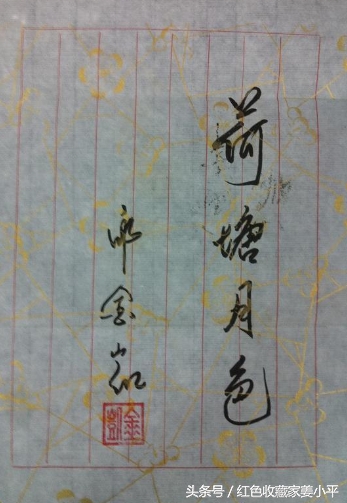 荷塘月色
金
头条号 / 红色收藏家姜小平